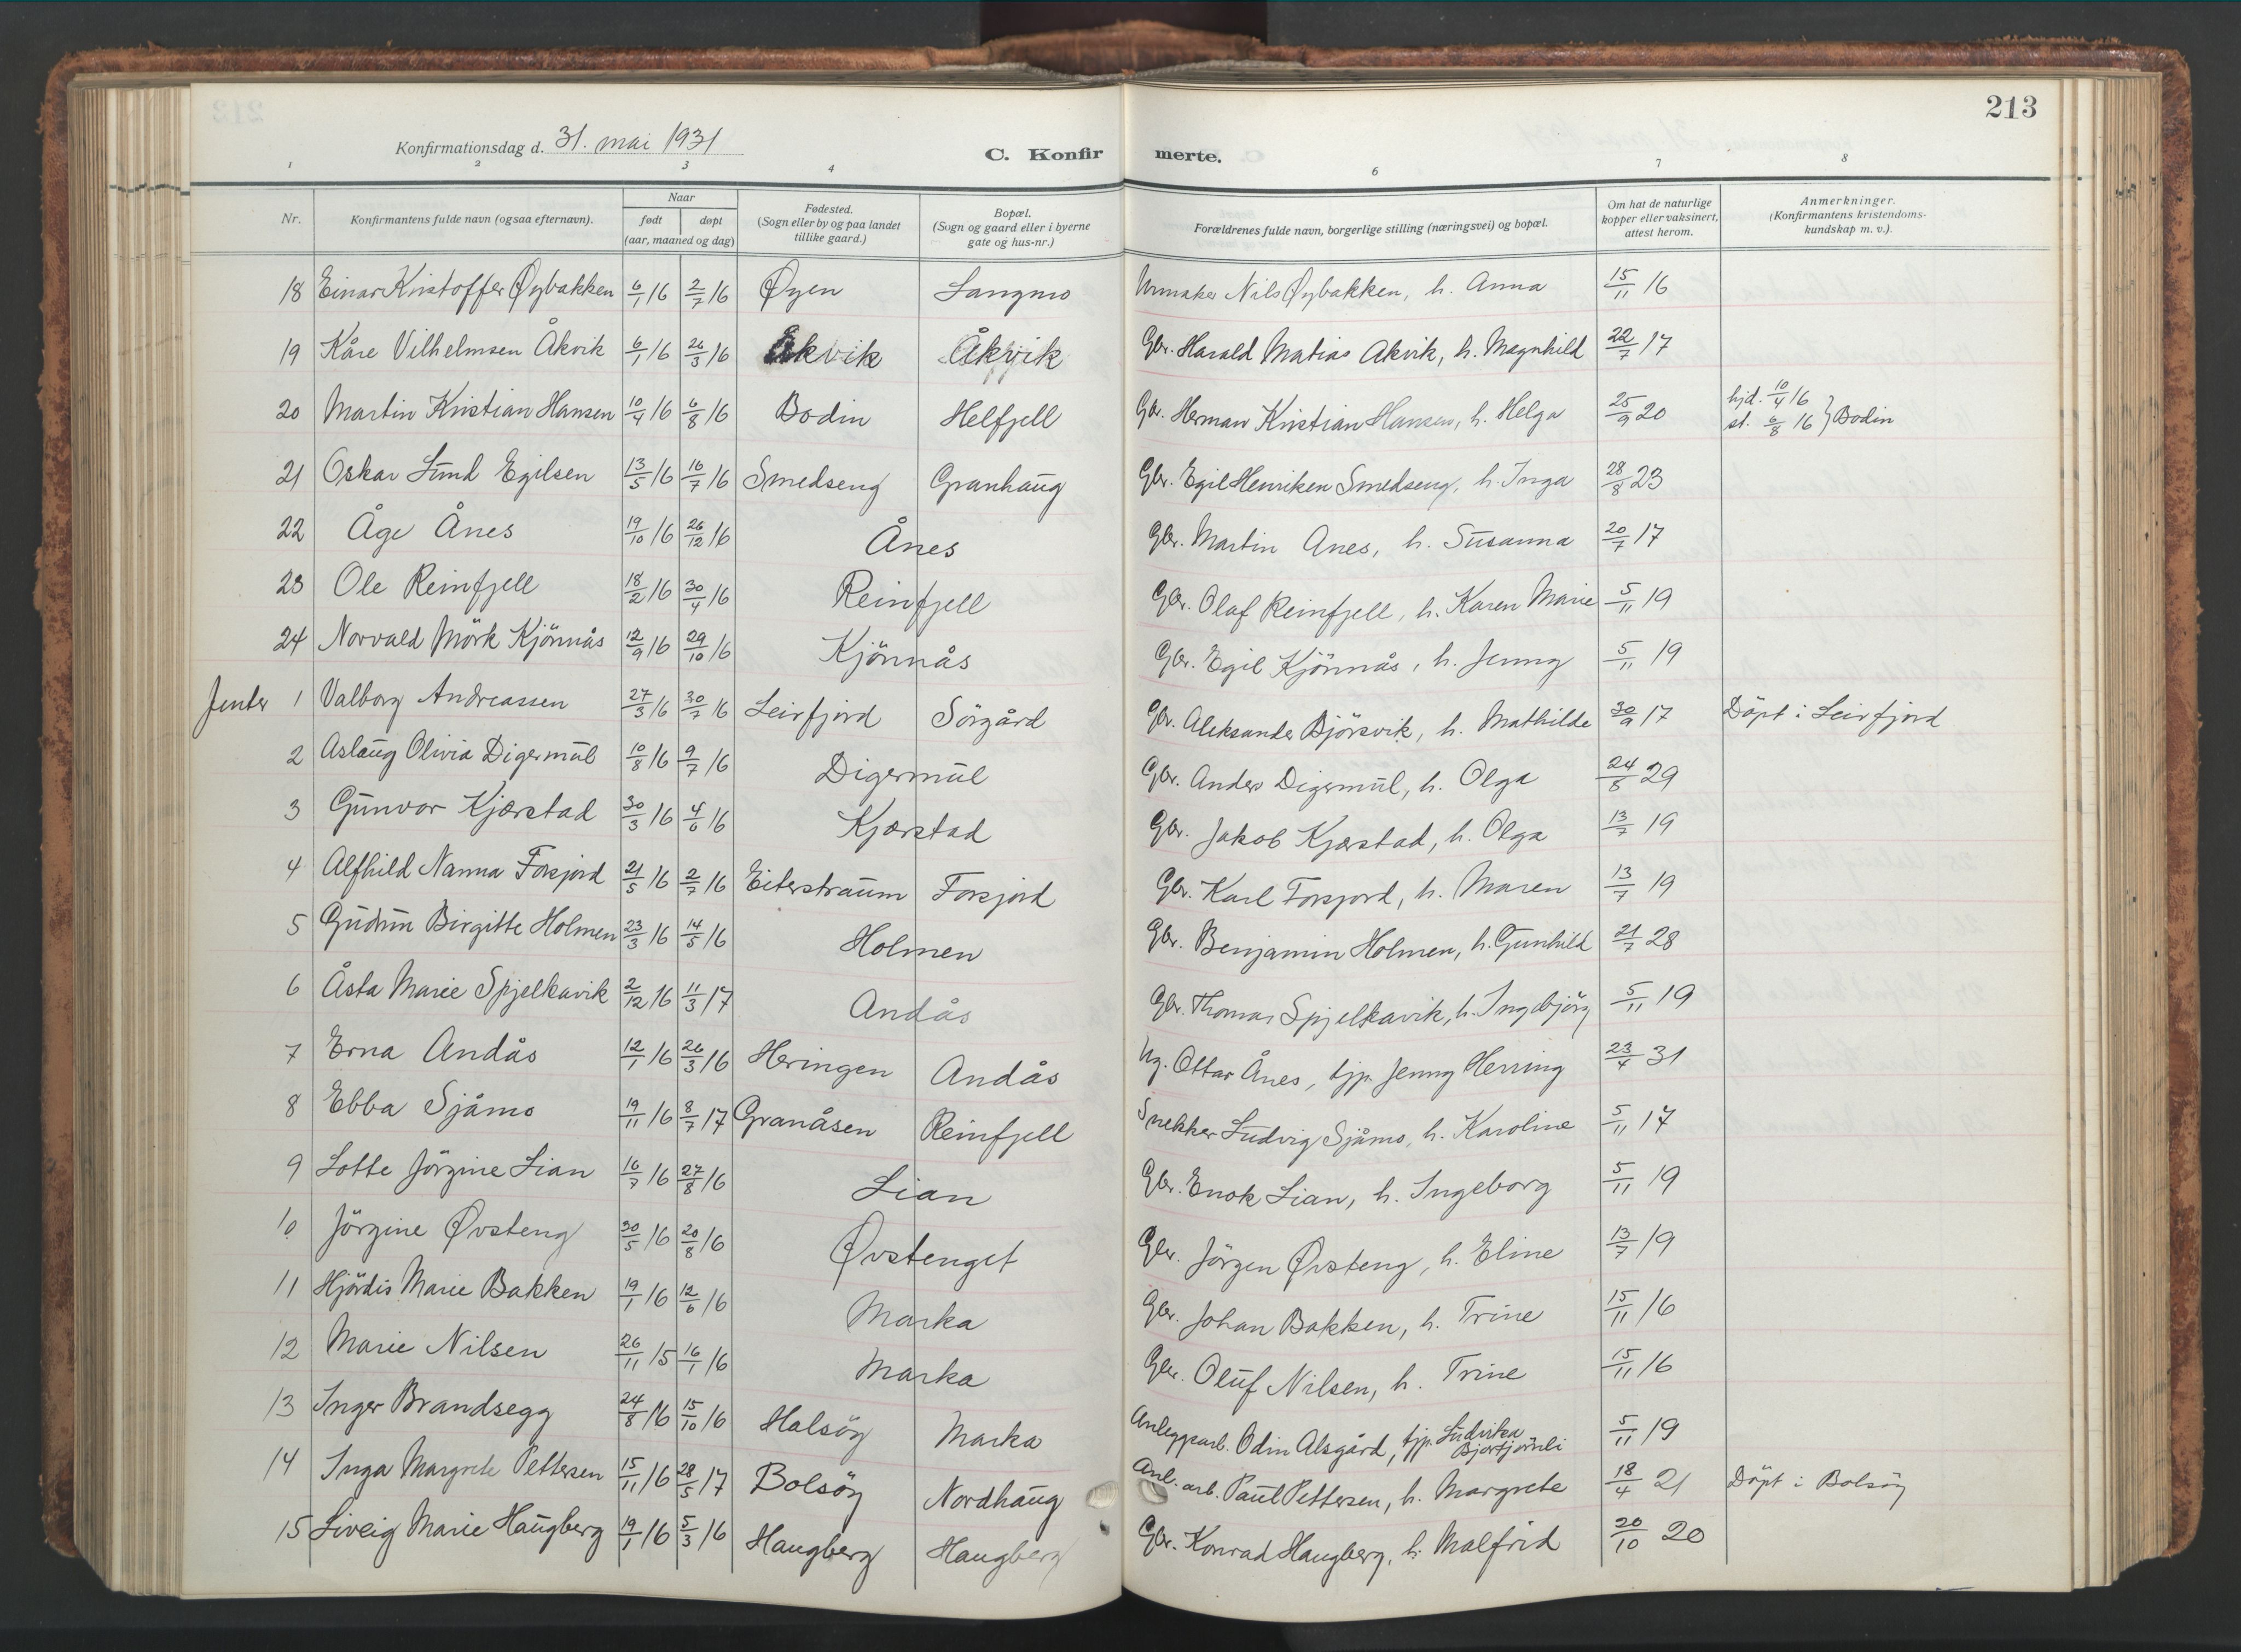 213
Konfirmationsdag d. 31. mai 1931
C. Konfirmerte.
1 2 3 4 6 7 8
Nr. Konfirmantens fulde navn (ogsaa efternavn). Naar født døpt (aar, maaned og dag) Fødested. (Sogn eller by og paa landet tillike gaard.) Bopæl. (Sogn og gaard eller i byerne gate og hus-nr.) Forældrenes fulde navn, borgerlige stilling (næringsvei) og bopæl. Om hat de naturlige kopper eller vaksinert, attest herom. Anmerkninger. (Konfirmantens kristendomskundskap m. v.).
18 Einar Kristoffer Øybakken 6/1 16 2/7 16 Øyen Langmo Urmaker Nils Øybakken, h. Anna 15/11 16
19 Kåre Vilhelmsen Åkvik 6/1 16 26/3 16 Åkvik Åkvik Gbr. Harald Matias Åkvik, h. Magnhild 22/7 17
20 Martin Kristian Hansen 10/4 16 6/8 16 Bodin Helfjell Gbr. Herman Kristian Hansen, h. Helga 25/9 20 hjd. 10/4 16 st. 6/8 16 } Bodin
21 Oskar Lund Egilsen 13/5 16 16/7 16 Smedseng Granhaug Gbr. Egil Henriksen Smedseng, h. Inga 28/8 23
22 Åge Ånes 19/10 16 26/12 16 Ånes Gbr. Martin Ånes, h. Susanna 20/7 17
23 Ole Reinfjell 18/2 16 30/4 16 Reinfjell Gbr. Olaf Reinfjell, h. Karen Marie 5/11 19
24 Norvald Mörk Kjönnås 12/9 16 29/10 16 Kjönnås Gbr. Egil Kjönnås, h. Jenny 5/11 19
Jenter 1 Valborg Andreassen 27/3 16 30/7 16 Leirfjord Sörgård Gbr. Aleksander Björsvik, h. Mathilde 30/9 17 Döpt i Leirfjord
2 Aslaug Olivia Digermul 10/8 16 9/7 16 Digermul Gbr. Anders Digermul, h. Olga 24/8 29
3 Gunvor Kjærstad 30/3 16 4/6 16 Kjærstad Gbr. Jakob Kjærstad, h. Olga 13/7 19
4 Alfhild Nanna Forsjord 21/5 16 2/7 16 Eiterstraum Forsjord Gbr. Karl Forsjord, h. Maren 13/7 19
5 Gudrun Birgitte Holmen 23/3 16 14/5 16 Holmen Gbr. Benjamin Holmen, h. Gunhild 21/7 28
6 Åsta Marie Spjelkavik 2/12 16 11/3 17 Andås Gbr. Thomas Spjelkavik, h. Ingebjörg 5/11 19
7 Erna Andås 12/1 16 26/3 16 Heringen Andås Ug. Ottar Ånes, tjp. Jenny Herring 23/4 31
8 Ebba Sjåmo 19/11 16 8/7 17 Granåsen Reinfjell Snekker Ludvig Sjåmo, h. Karoline 5/11 17
9 Lotte Jörgine Lian 16/7 16 27/8 16 Lian Gbr. Enok Lian, h. Ingeborg 5/11 19
10 Jörgine Øvsteng 30/5 16 20/8 16 Øvstenget Gbr. Jörgen Øvsteng, h. Eline 13/7 19
11 Hjördis Marie Bakken 19/1 16 12/6 16 Marka Gbr. Johan Bakken, h. Trine 15/11 16
12 Marie Nilsen 26/11 15 16/1 16 Marka Gbr. Oluf Nilsen, h. Trine 15/11 16
13 Inger Brandsegg 24/8 16 15/10 16 Halsöy Marka Anleggsarb. Odin Alsgård, tjp. Ludvika Bjortjønli 5/11 19
14 Inga Margrete Pettersen 15/11 16 28/5 17 Bolsöy Nordhaug Anl. arb. Paul Pettersen, h. Margrete 18/4 21 Döpt i Bolsöy
15 Liveig Marie Haugberg 19/1 16 5/3 16 Haugberg Haugberg Gbr. Konrad Haugberg, h. Malfrid 20/10 20